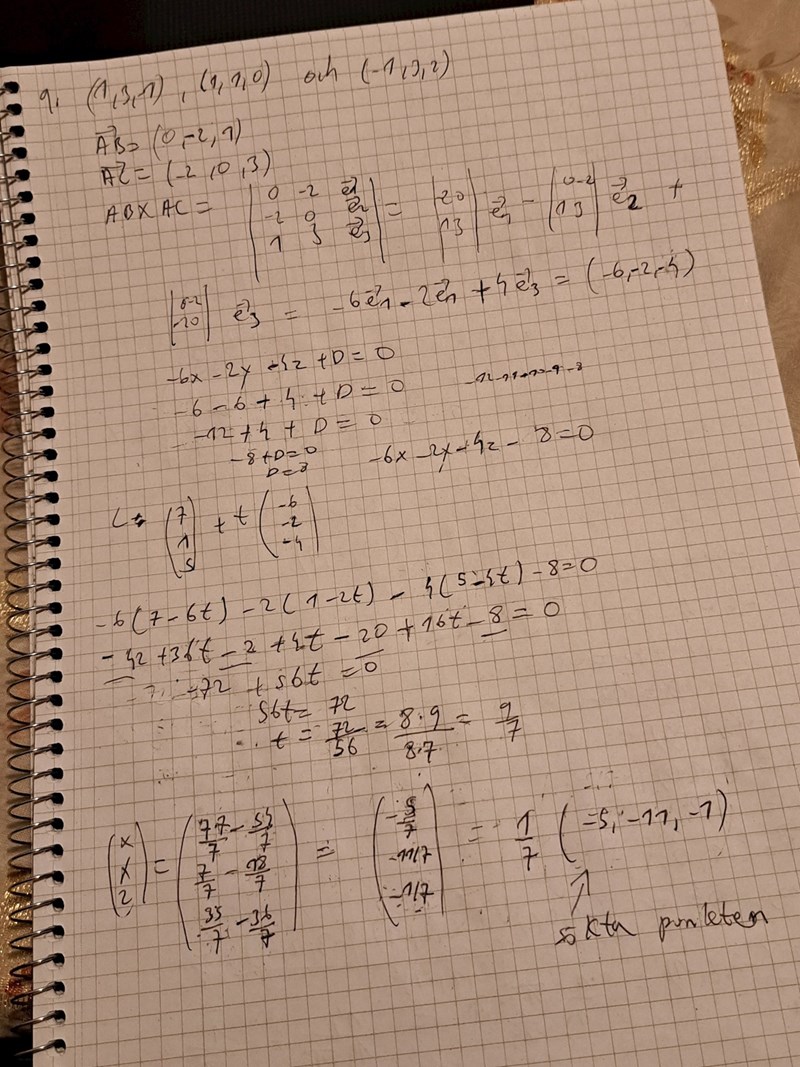 9. (1,3,-1), (1,1,0) och (-1,3,2)
AB = (0,-2,1)
AC = (-2,0,3)
AB×AC = | 0 -2 e1 | = | -2 0 | e1 - | 0 -2 | e2 +
| -2 0 e2 | | 1 3 | | 1 3 |
| 1 3 e3 |
| 0 -2 | e3 = -6e1 - 2e1 + 4e3 = (-6,-2,-4)
| -2 0 |
-6x - 2y - 4z + D = 0
-6 - 6 + 4 + D = 0
-12 + 4 + D = 0
-8 + D = 0
D = 8
-6x - 2y - 4z - 8 = 0
L: (7 1 5) + t (-6 -2 -4)
-6(7-6t) - 2(1-2t) - 4(5-4t) - 8 = 0
-42 + 36t - 2 + 4t - 20 + 16t - 8 = 0
-72 + 56t = 0
56t = 72
t = 72/56 = 8·9/8·7 = 9/7
(x y z) = (77/7 - 54/7 7/7 - 18/7 35/7 - 36/7) = (-5/7 -11/7 -1/7) = 1/7 (-5, -11, -1)
sökta punkten